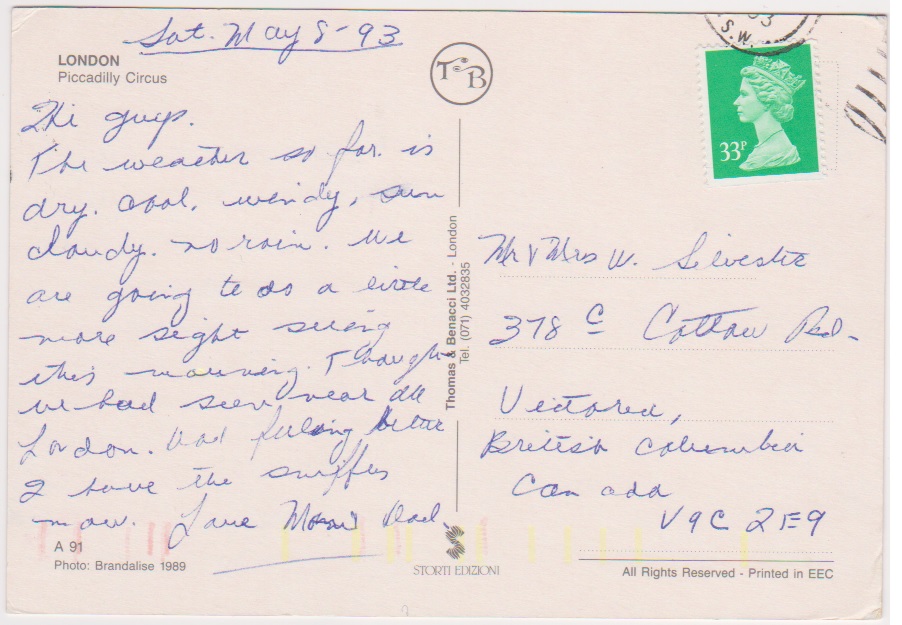 Sat. May 8-93
LONDON
Piccadilly Circus
Hi guys.
The weather so far. is
dry. cool, windy, sun
cloudy. no rain. We
are going to do a little
more sight seeing
this morning. Thought
we had seen near all
London. Dad feeling better
I have the sniffles
now. Love Mom Dad.
A 91
Photo: Brandalise 1989
TB
Thomas & Benacci Ltd. - London
Tel. (071) 4032835
STORTI EDIZIONI
S.W.
33P
Mr & Mrs W. Silvester
378 C Rd.
Victoria,
British Columbia
Canada
V9C 2E9
All Rights Reserved - Printed in EEC